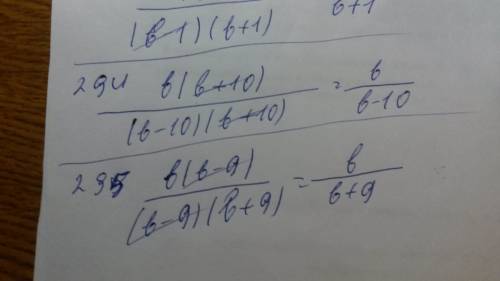 (b-1)(b+1) b+1
294 b(b+10)/(b-10)(b+10) = b/b-10
295 b(b-9)/(b-9)(b+9) = b/b+9